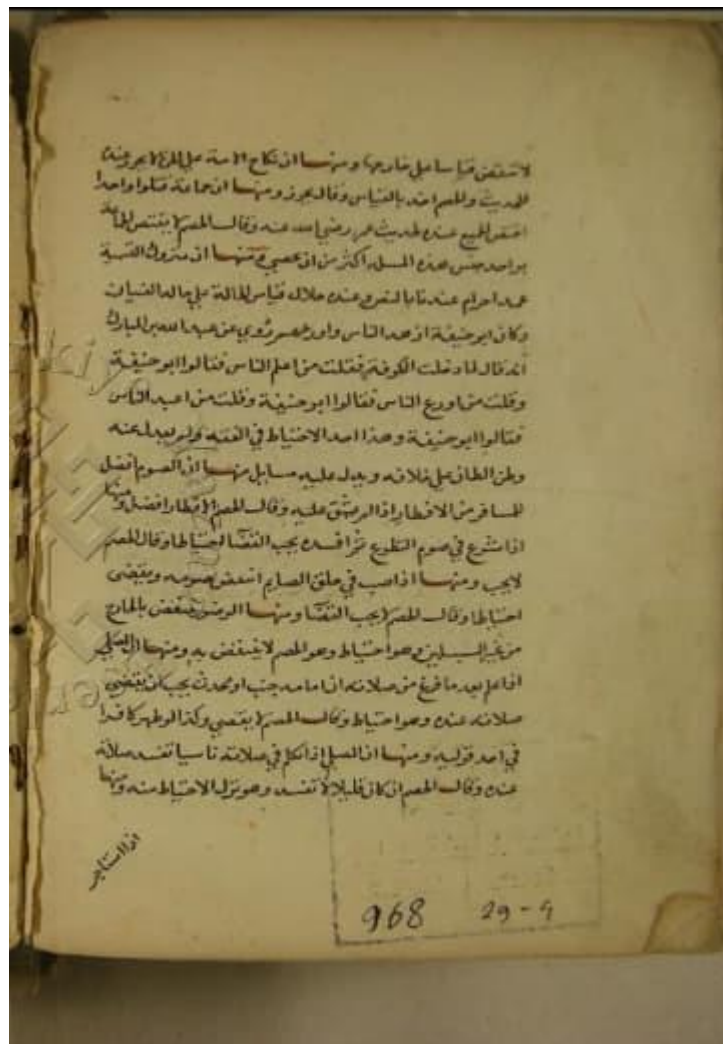 لا تنتقض قياسا على خارجها ومنها ان نكاح الامة على الحرة لا يجوز عنده
للحديث والخصم اخذ بالقياس وقال يجوز ومنها ان جماعة قتلوا واحدا
اقتص الجميع عنده لحديث عمر رضي الله عنه وقال الخصم لا يقتص الجماعة
بواحد جنس هذه المسايل اكثر من ان يحصى ومنها ان متروك التسمية
عمدا حرام عندنا بالنص وعنده حلال قياس الحالة على حالة النسيان
وكان ابو حنيفة ازهد الناس واورعهم روي عن عبد الله بن المبارك
أنه قال لما دخلت الكوفة فقلت من اعلم الناس فقالوا ابو حنيفة
وقلت من اورع الناس فقالوا ابو حنيفة وقلت من اعبد الناس
فقالوا ابو حنيفة وهذا اخذ الاحتياط في الفقه ولم يعدل عنه
وظن الظان على خلافه ويدل عليه مسايل منها ان الصوم أفضل
للمسافر من الافطار اذا لم يشق عليه وقال الخصم الافطار افضل ومنها
اذا شرع في صوم التطوع ثم افسده يجب القضا احتياطا وقال الخصم
لا يجب ومنها اذا صب في حلق الصايم انتقض صومه ويقضى
احتياطا وقال الخصم لا يجب القضا ومنها الوضوء ينتقض بالخارج
من غير السبيلين وهو احتياط وهو الخصم لا ينتقض به ومنها ان المصلي
اذا علم بعد ما فرغ من صلاته ان امامه جنب او محدث يجب ان يقضي
صلاته عنده وهو احتياط وقال الخصم لا يقضي وكذا لو ظهر كافرا
في احد قوليه ومنها ان المصلي اذا تكلم في صلاته ناسيا تفسد صلاته
عنده وقال الخصم ان كان قليلا لا تفسد وهو ترك الاحتياط منه ومنها
اذا استاجر
968 29-9